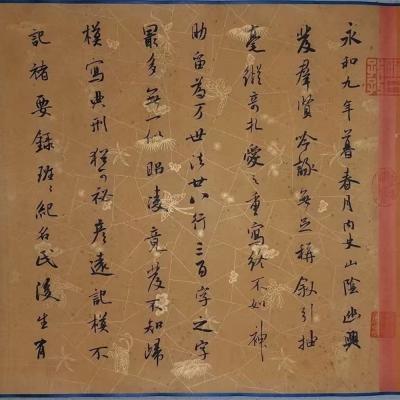 永和九年暮春月内史山陰幽興
發群賢吟詠無足稱叙引抽
毫縱奇札愛之重寫終不如神
助留為万世法廿八行三百字之字
最多無一似昭陵竟發不知歸
模寫典刑猶可秘彦遠記模不
記褚要錄班〻紀名氏後生有